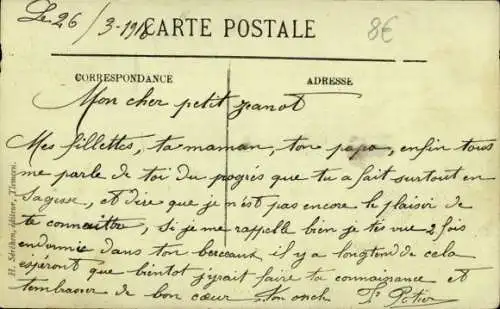 Le 26/3-1918
CARTE POSTALE
8€
CORRESPONDANCE
ADRESSE
Mon cher petit janot
Mes fillettes, ta maman, ton papa, enfin tous
me parle de toi du progrés que tu a fait surtout en
sagesse, et dire que je n'est pas encore le plaisir de
te connaître, si je me rappelle bien je t'es vue 2 fois
endormie dans ton berceaux il y a longtend de cela
espéront que bientot j'yrait faire ta connaissance et
t'embrasser de bon cœur, ton onch
H. Séréhen, éditeur, Tlemcen.